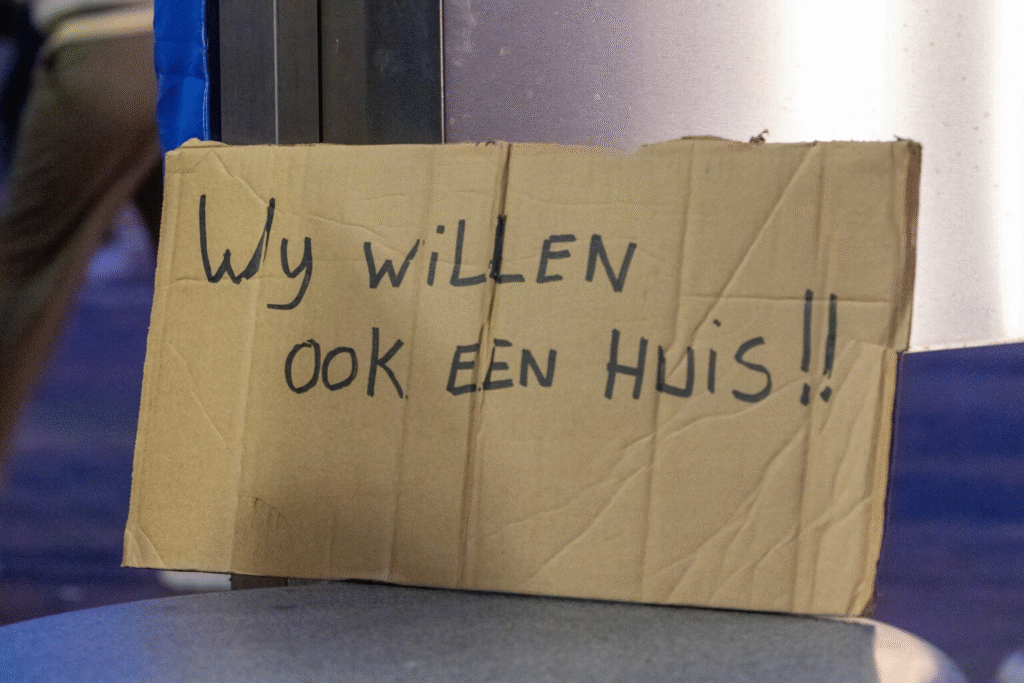 Wy WiLLEN
OOK EEN HUiS!!